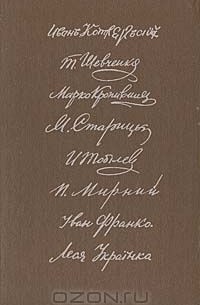 Иванъ Котляревській
Т. Шевченко
Марко Кропивниц
М. Старицький
И Тобілев
П. Мирний
Іван Франко.
Леся Українка
OZON.ru